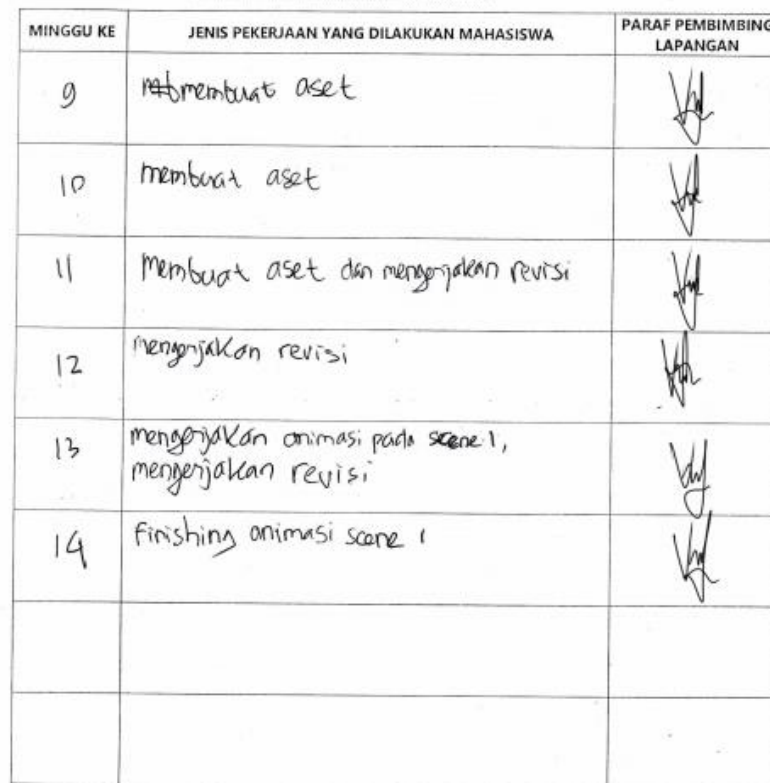 MINGGU KE JENIS PEKERJAAN YANG DILAKUKAN MAHASISWA PARAF PEMBIMBING
LAPANGAN
9 membuat aset
10 membuat aset
11 Membuat aset dan mengerjakan revisi
12 mengerjakan revisi
13 mengerjakan animasi pada scene 1,
mengerjakan revisi
14 Finishing animasi scene 1